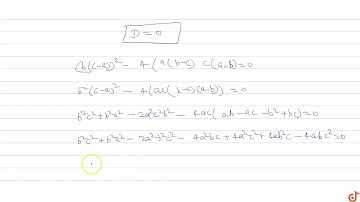 D = 0
(b(c-a))² - 4(a(b-c) c(a-b) = 0
b²(c-a)² - 4(ac(b-c)(a-b)) = 0
b²c² + b²a² - 2a²c²b² - 4ac(ab-ac-b²+bc) = 0
b²c² + b²a² - 2a²b²c² - 4a²bc + 4a²c² + 4ab²c - 4abc² = 0